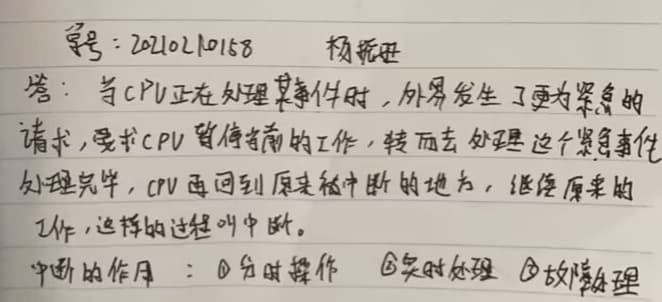 学号：20210210158 杨振进
答：当CPU正在处理某事件时，外界发生了更为紧急的
请求，要求CPU暂停当前的工作，转而去处理这个紧急事件
处理完毕，CPU再回到原来被中断的地方，继续原来的
工作，这样的过程叫中断。
中断的作用：①分时操作 ②实时处理 ③故障处理